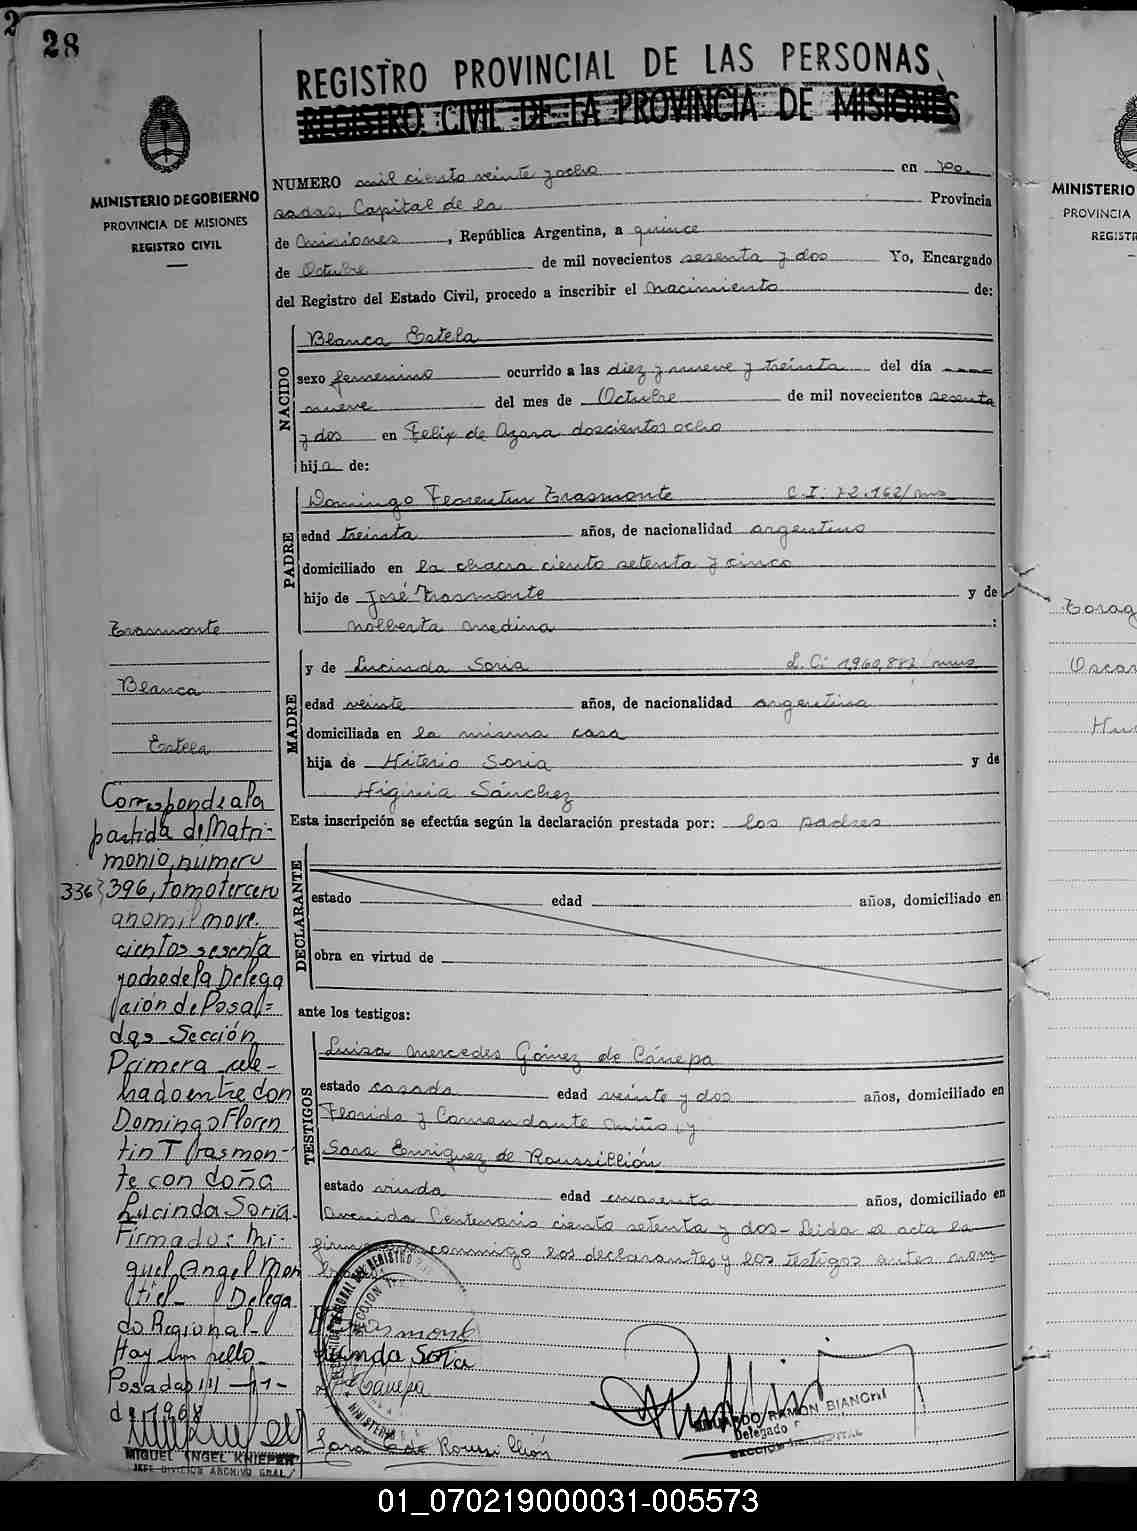 28
REGISTRO PROVINCIAL DE LAS PERSONAS
REGISTRO CIVIL DE LA PROVINCIA DE MISIONES
MINISTERIO DE GOBIERNO
PROVINCIA DE MISIONES
REGISTRO CIVIL
NUMERO mil ciento veinte y ocho en Po-
sadas, Capital de la Provincia
de Misiones, República Argentina, a quince
de Octubre de mil novecientos sesenta y dos Yo, Encargado
del Registro del Estado Civil, procedo a inscribir el nacimiento de:
NACIDO
Blanca Estela
sexo femenino ocurrido a las diez y nueve y treinta del día
nueve del mes de Octubre de mil novecientos sesenta
y dos en Felix de Azara doscientos ocho
hija de:
PADRE
Domingo Florentin Trasmonte C.I. 72.162/mns
edad treinta años, de nacionalidad argentino
domiciliado en la chacra ciento setenta y cinco
hijo de José Trasmonte y de
Nolberta Medina :
MADRE
y de Lucinda Soria L.C. 1,960,887/mns
edad veinte años, de nacionalidad argentina
domiciliada en la misma casa
hija de Hiterio Soria y de
Higinia Sánchez
Esta inscripción se efectúa según la declaración prestada por: los padres
DECLARANTE
estado edad años, domiciliado en
obra en virtud de
ante los testigos:
TESTIGOS
Luisa Mercedes Gómez de Cánepa
estado casada edad veinte y dos años, domiciliado en
Florida y Comandante Miño, y
Sara Enriquez de Roussillión
estado viuda edad cuarenta años, domiciliado en
Avenida Centenario ciento setenta y dos - Leida el acta la
conmigo los declarantes y los testigos antes nom-
Lucinda Soria
Canepa
Sara E de Roussillión
EDUARDO RAMON BIANCHI
Delegado
Trasmonte
Blanca
Estela
Corresponde a la
partida de Matri-
monio, número
336 396, tomo tercero
año mil nove-
cientos sesenta
y ocho de la Delega
ción de Posa-
das Sección
Primera cele-
brado entre don
Domingo Floren
tin Trasmon-
te con doña
Lucinda Soria.
Firmado: Mi-
guel Angel Mon
tiel - Delega
do Regional-
Hay un sello
Posadas
de 1968
MIGUEL ANGEL KNIEPER
JEFE DIVISION ARCHIVO GRAL.
MINISTERIO
PROVINCIA
REGISTR
Oscar
01_070219000031-005573